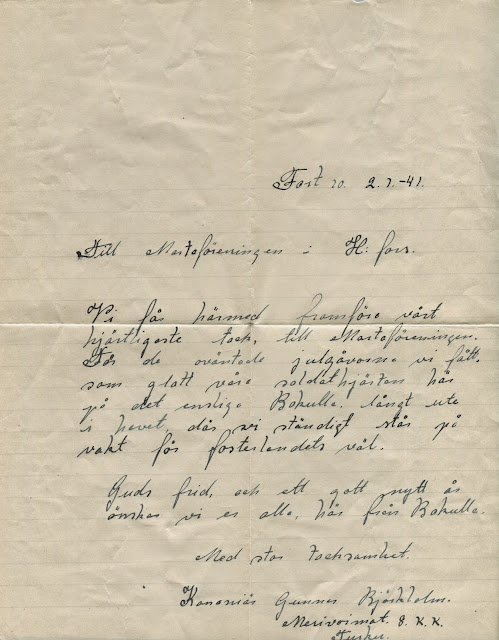 Fort 20. 2.1.-41.
Till Martaföreningen i H:fors.
Vi får härmed framföra vårt
hjärtligaste tack, till Martaföreningen.
För de oväntade julgåvorna vi fått.
som glatt våra soldathjärtan här
på det ensliga Bokulla. långt ute
i havet, där vi ständigt står på
vakt för fosterlandets väl.
Guds frid, och ett gott nytt år
önskar vi er alla, här från Bokulla.
Med stor tacksamhet.
Kanoniär Gunnar Björkholm.
Merivoimat. 8. K.K.
Turku.